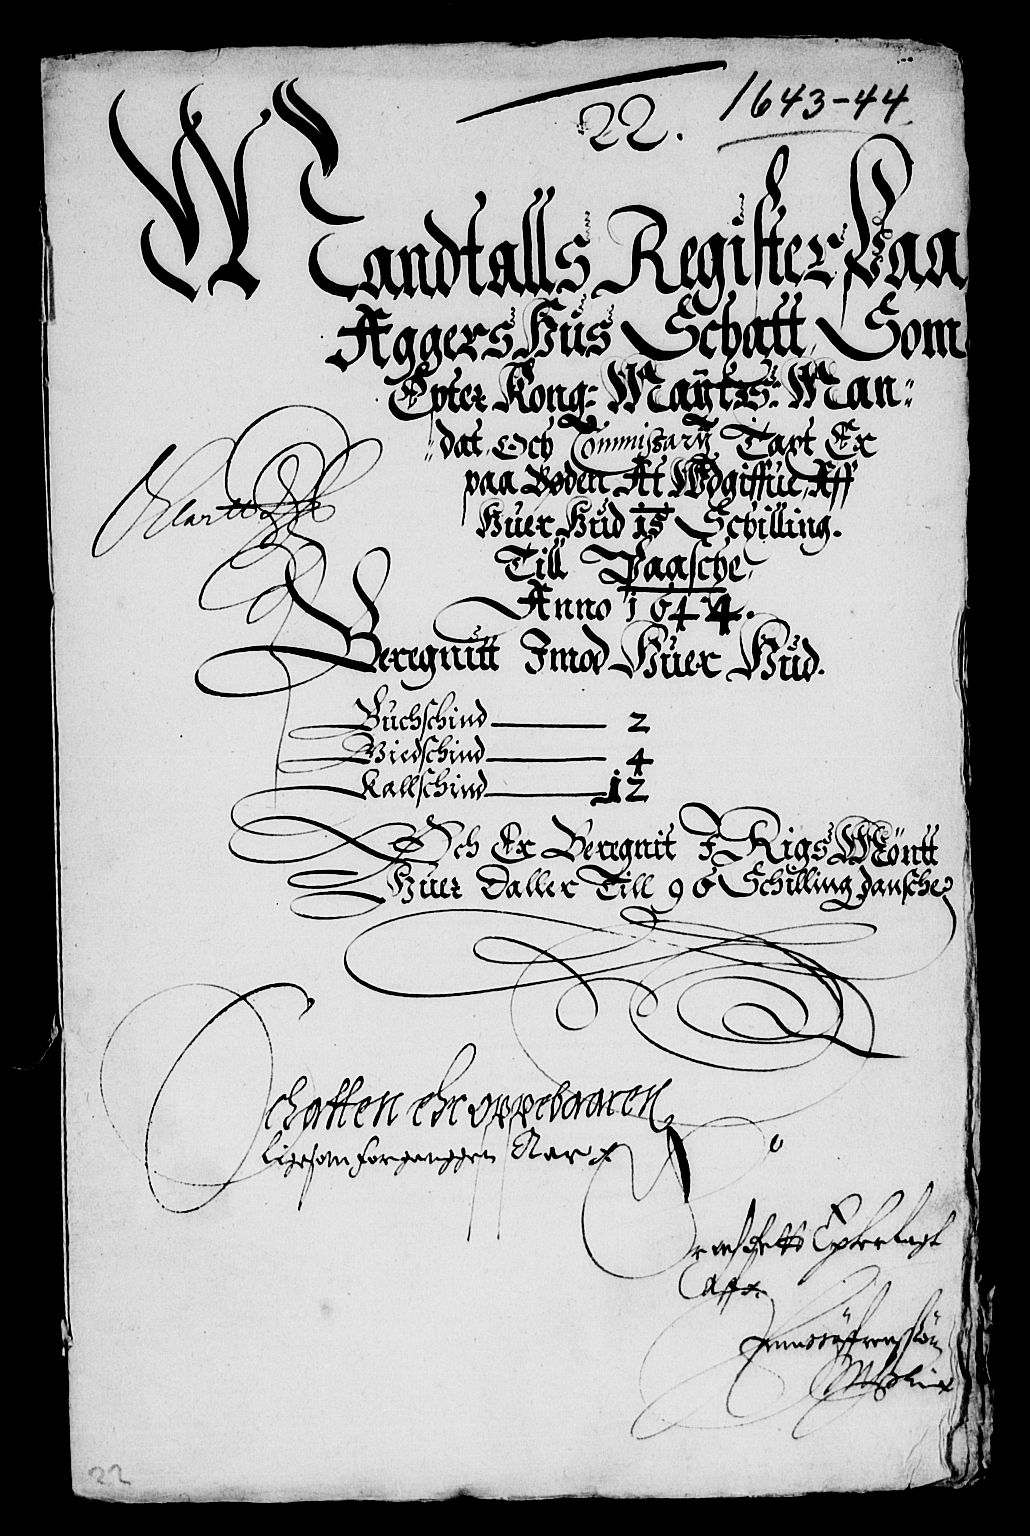 1643-44
22.
Mandtalls Register Paa
Aggershus Schatt, Som
Epter Kong: Maÿtts: Man„
„dat, Och Commissarÿ Taxt Er
paa Bøden At Udgiffue, Aff
Huer Hud 15 Schilling.
Till Paasche,
Anno 1644.
Beregnitt Imod Huer Hud.
Buchschind 2
Giedschind 4
Kallfschind 12
Och Er Beregnit I Rigs Möntt
Huer Daller Till 96 Schilling danske
Schatten ehr oppebaaren
ligesom forganggen Aar
Epterlagt
Aff
22